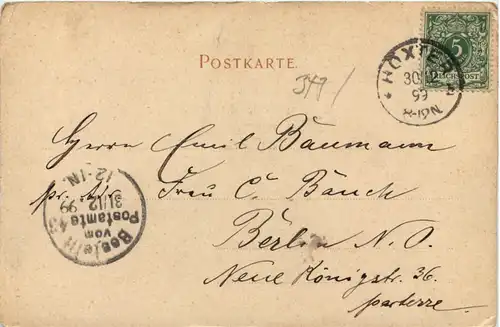 POSTKARTE.
349/
5
REICHSPOST
HÖXTER
30 12
99
8-9N
Herrn Emil Baumann
pr. Adr. Frau C. Bänch
Berlin N. O.
Neue Königstr. 36.
parterre.
Bestellt
vom
Postamte 43
31/12 99
12-1N.